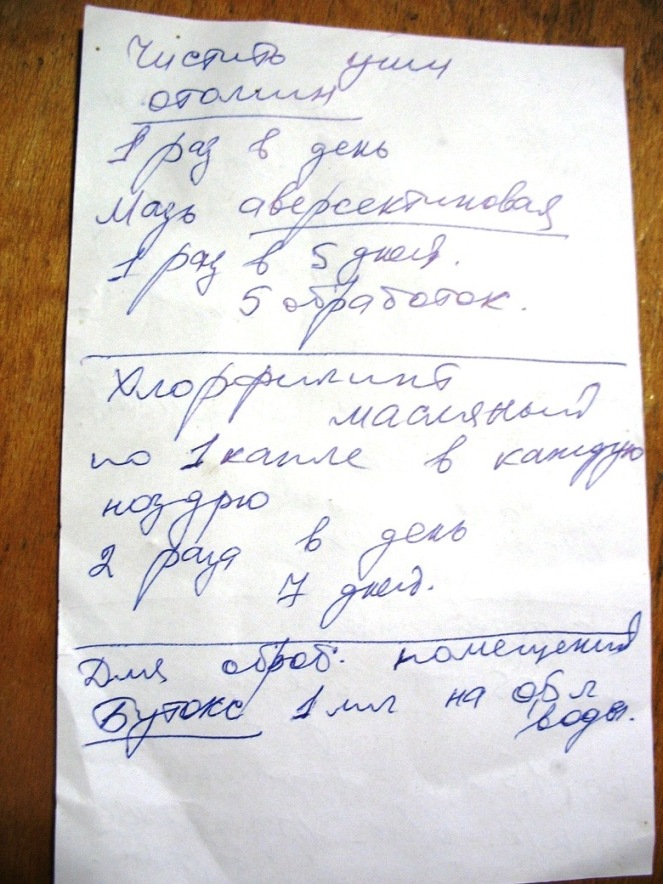 Чистить уши
отолмин
1 раз в день
Мазь аверсектиновая
1 раз в 5 дней.
5 обработок.
Хлорфилипт
масляный
по 1 капле в каждую
ноздрю
2 раза в день
7 дней.
Для обраб. помещений
Бутокс 1 мл на 0,5 л
воды.